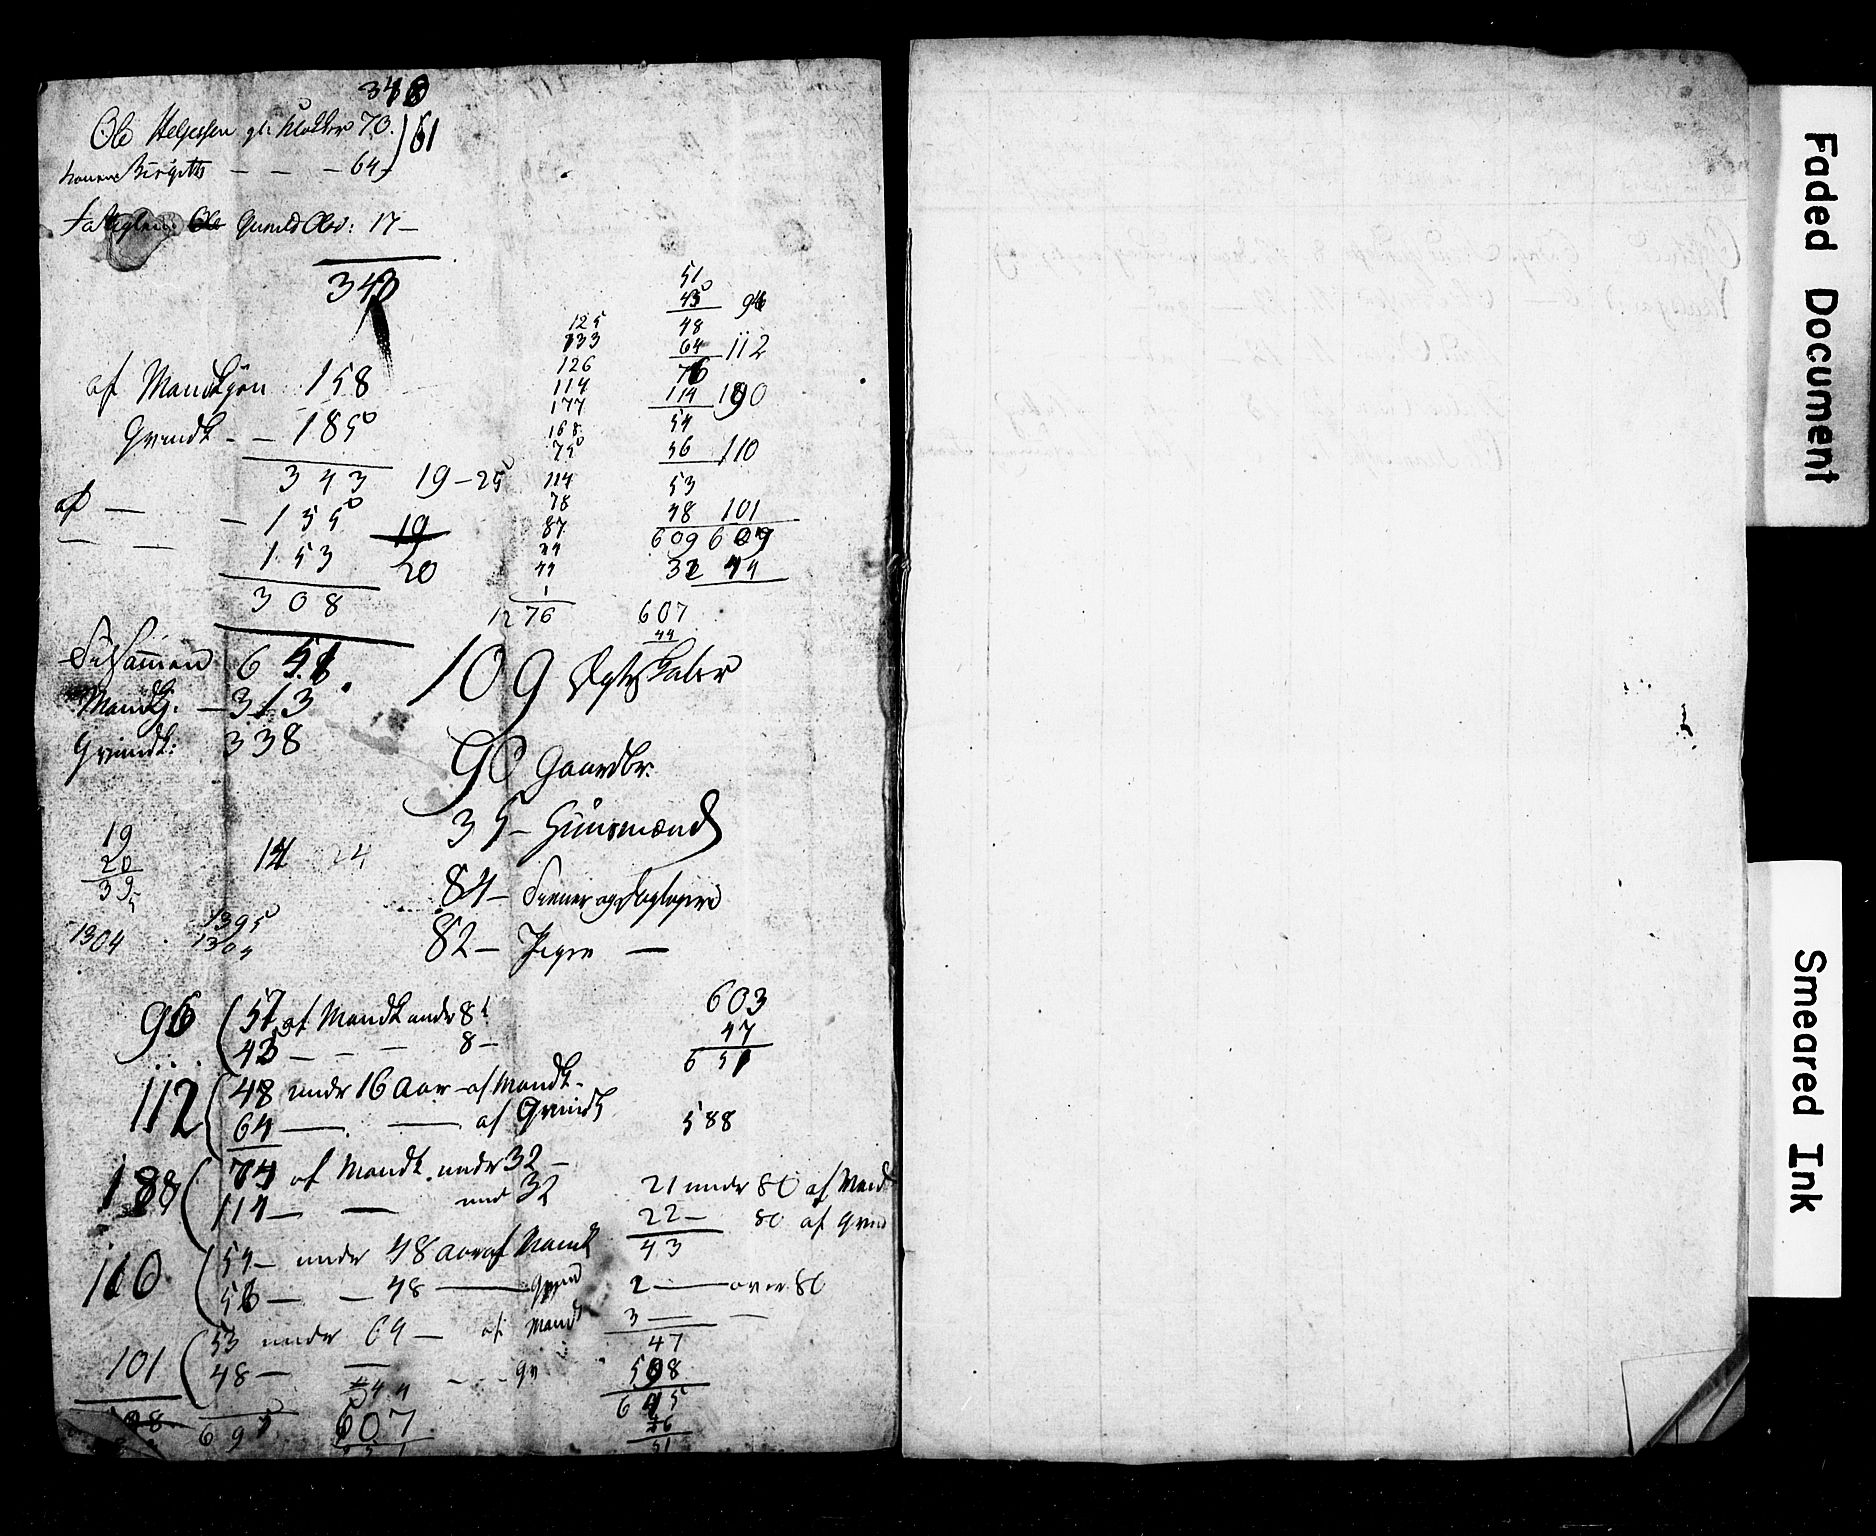 343
Ole Helgesen gl: Klokker 70. } 51
konen Birgitte — — — 64
Fattiglem: Ole Gunild Olsd: 17 —
343
af Mandkjøn 158
Qvindk — — 185
343 19 — 25
af — — 155 19
— — 153 20
308
Tilsammen 651
Mandkj. — 313
Qvindk: 338
19
20
39
14 24
1304
1395
1304
125
133
126
114
177
168
75
114
78
87
34
44
1
1276
51
45 96
48
64 112
76
114 190
54
56 110
53
48 101
609 609
32 44
607
44
109 Ægteskaber
90 Gaardbr:
35 — Huusmænd
84 — Tienere og
82 — Piger —
96 ( 51 af Mandk under 8
45 — — — 8 —
112 ( 48 under 16 Aar — af Mandk.
64 — — af Qvindk
188 ( 74 af Mandk. under 32 —
114 — — und 32
110 ( 54 — under 48 Aar af Mandk
56 — — 48 — Qvind
101 ( 53 under 64 — af Mandk
48 — — — — Qv
44
607
603
47
651
588
21 under 80 af Mandk
22 — 80 af Qvin
43
2 — over 80
3 — —
47
598
645
6
51
Faded Document
Smeared Ink